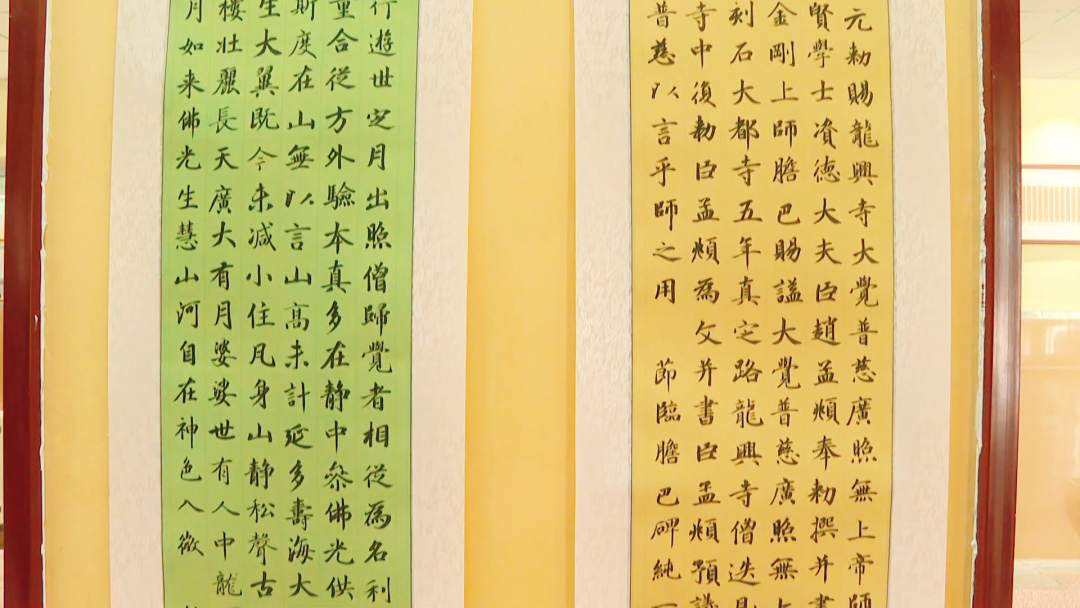 元勅賜龍興寺大覺普慈廣照無上帝師
賢學士資德大夫臣趙孟頫奉勅撰并書
金剛上師膽巴賜諡大覺普慈廣照無上
刻石大都寺五年真定路龍興寺僧迭凡
寺中復勅臣孟頫為文并書臣孟頫預議
普慈以言乎師之用 節臨膽巴碑純一
行遊世定月出照僧歸覺者相從為名利
重合從方外驗本真多在静中參佛光供
斯度在山無以言山高未計延多壽海大
生大翼既今未减小住凡身山静松聲古
樓壯麗長天廣大有月婆娑世有人中龍
月如来佛光生慧山河自在神色入微